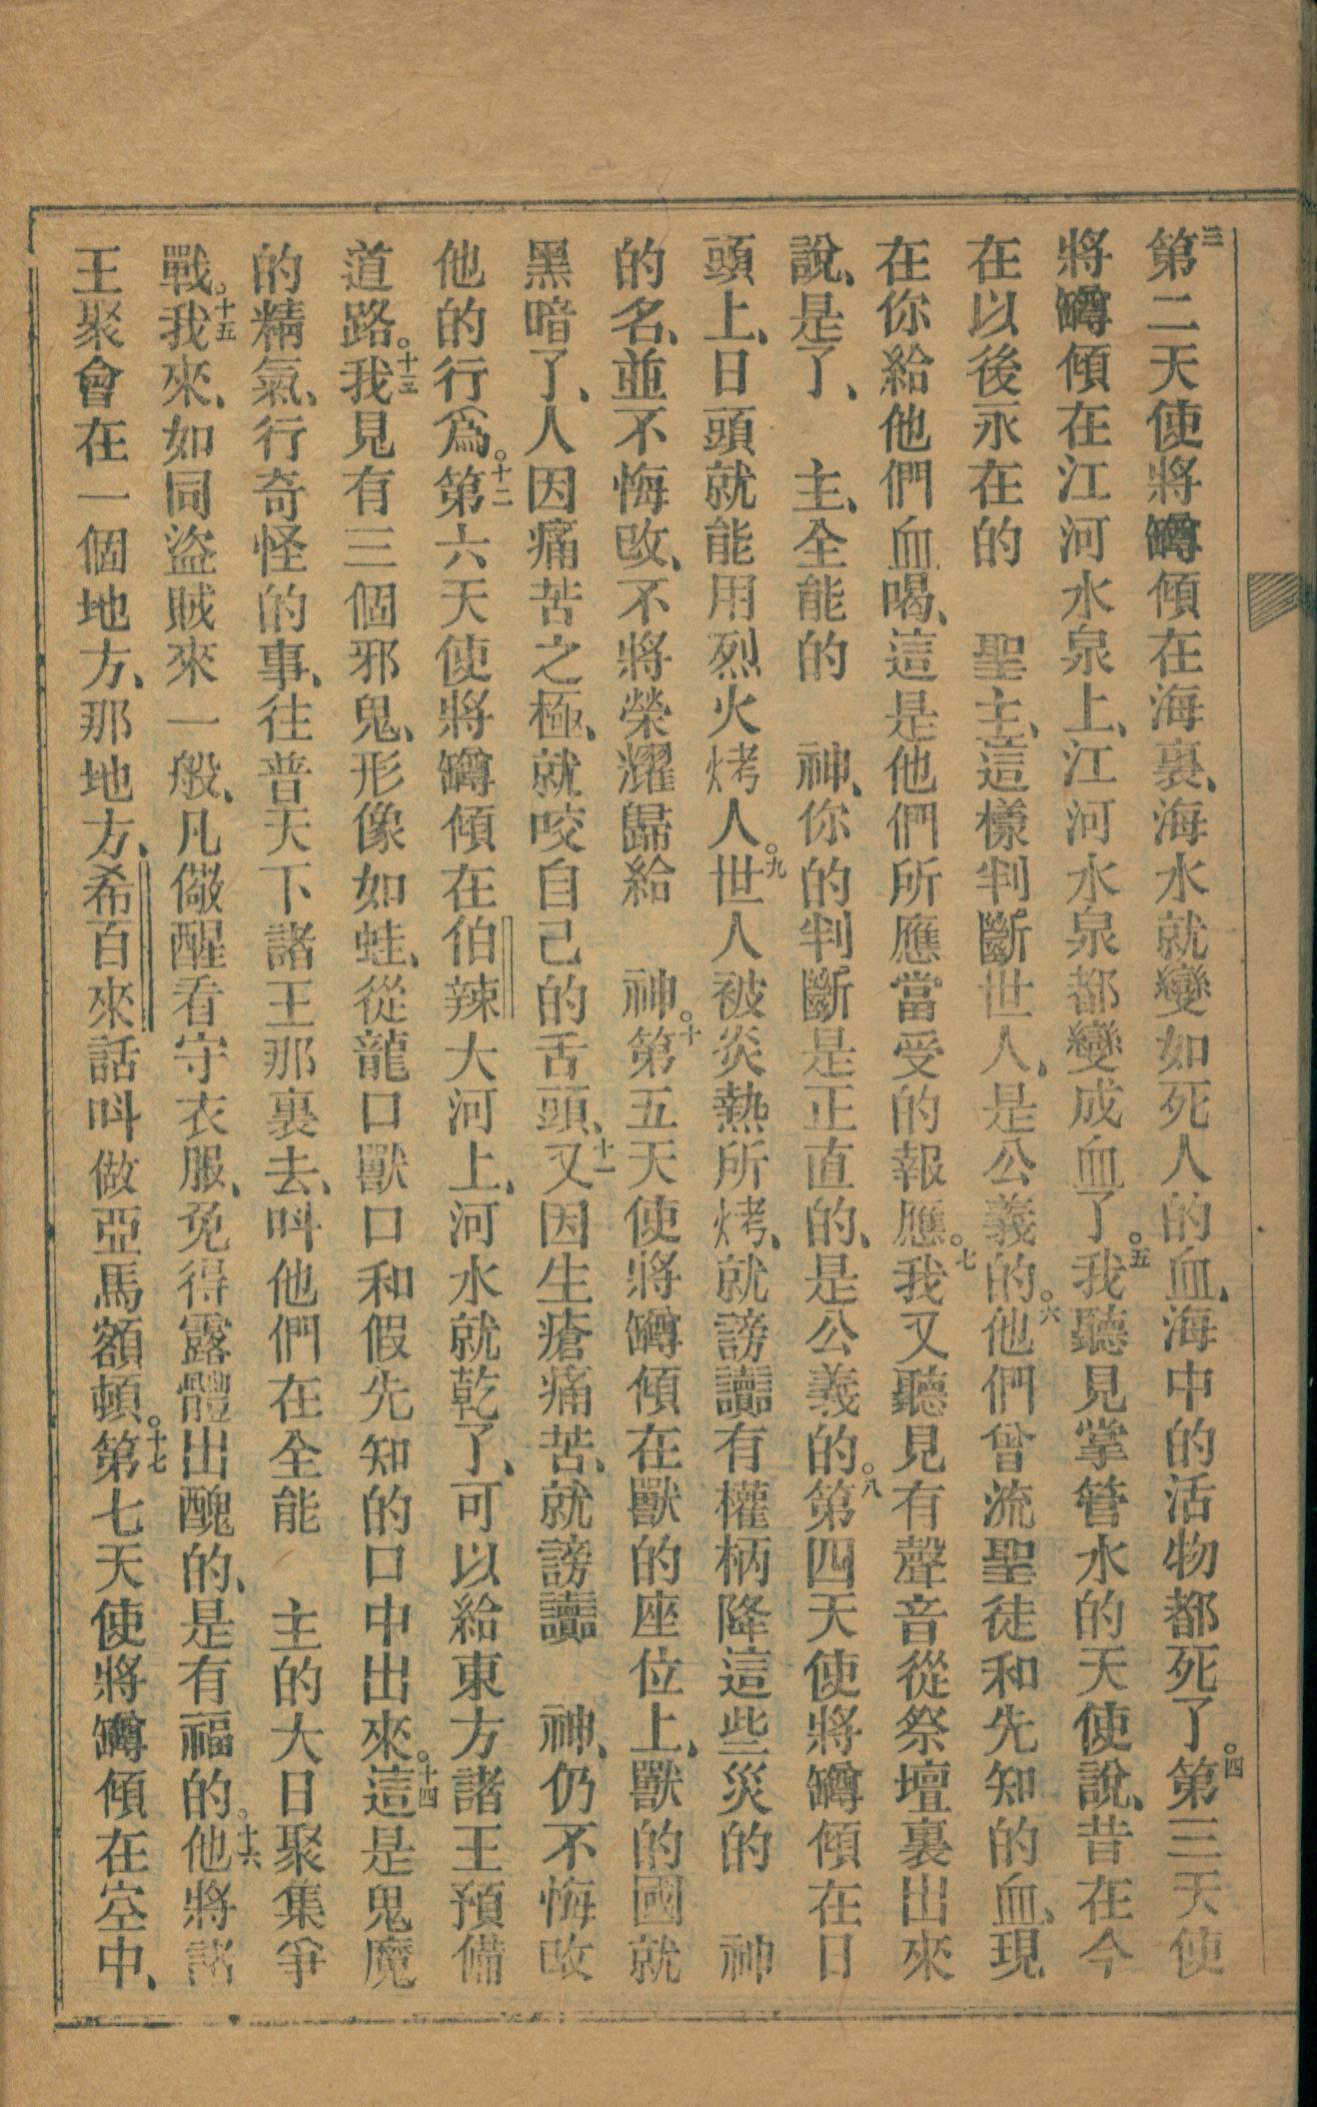 三第二天使將罇傾在海裏、海水就變如死人的血、海中的活物都死了。四第三天使
將罇傾在江河水泉上、江河水泉都變成血了。五我聽見掌管水的天使說、昔在今
在以後永在的　聖主、這樣判斷世人、是公義的。六他們曾流聖徒和先知的血、現
在你給他們血喝、這是他們所應當受的報應。七我又聽見有聲音從祭壇裏出來
說、是了、　主、全能的　神、你的判斷是正直的、是公義的。八第四天使將罇傾在日
頭上、日頭就能用烈火烤人。九世人被炎熱所烤、就謗讟有權柄降這些災的　神
的名、並不悔改、不將榮耀歸給　神。十第五天使將罇傾在獸的座位上、獸的國就
黑暗了、人因痛苦之極、就咬自己的舌頭、十一又因生瘡痛苦、就謗讟　神、仍不悔改
他的行爲。十二第六天使將罇傾在伯辣大河上、河水就乾了、可以給東方諸王預備
道路。十三我見有三個邪鬼、形像如蛙、從龍口獸口和假先知的口中出來。十四這是鬼魔
的精氣、行奇怪的事、往普天下諸王那裏去、叫他們在全能　主的大日聚集爭
戰。十五我來、如同盜賊來一般、凡儆醒看守衣服、免得露體出醜的、是有福的。十六他將諸
王聚會在一個地方、那地方、希百來話叫做亞馬額頓。十七第七天使將罇傾在空中、